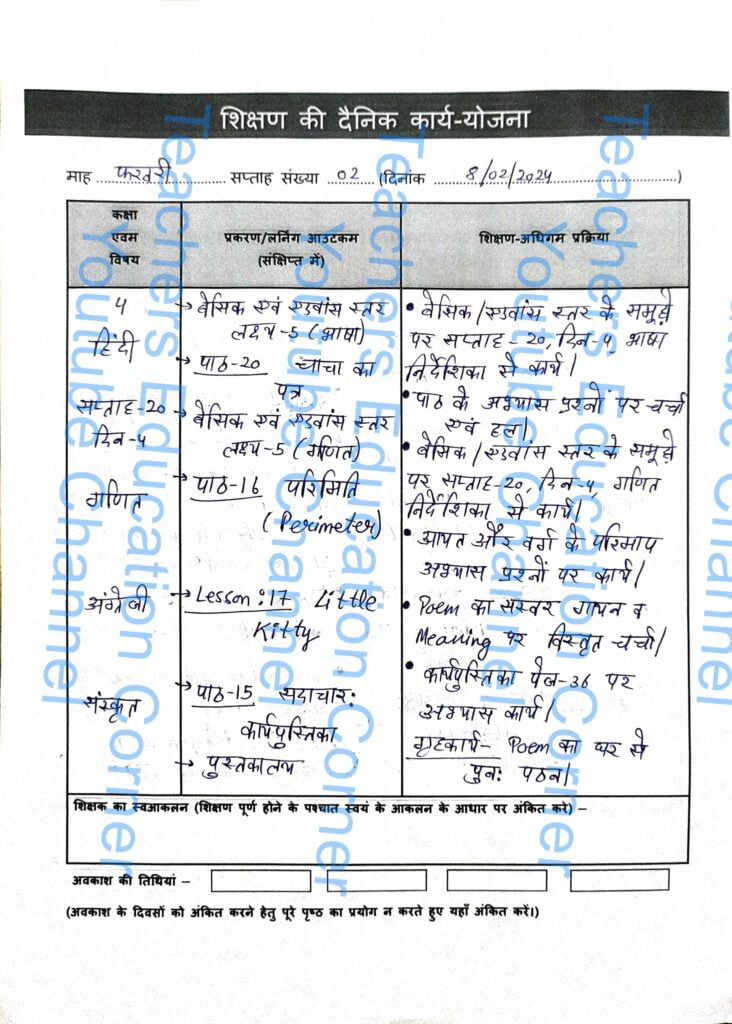 शिक्षण की दैनिक कार्य-योजना
माह फरवरी सप्ताह संख्या 02 (दिनांक 8/02/2024)
कक्षा एवम विषय
प्रकरण/लर्निंग आउटकम (संक्षिप्त में)
शिक्षण-अधिगम प्रक्रिया
4
हिंदी
सप्ताह-20
दिन-4
गणित
अंग्रेजी
संस्कृत
→ बेसिक एवं एडवांस स्तर
लक्ष्य-5 (भाषा)
→ पाठ-20 चाचा का
पत्र
→ बेसिक एवं एडवांस स्तर
लक्ष्य-5 (गणित)
→ पाठ-16 परिमिति
(Perimeter)
→ Lesson:17 Little
Kitty
→ पाठ-15 सदाचार:
कार्यपुस्तिका
→ पुस्तकालय
• बेसिक/एडवांस स्तर के समूहों
पर सप्ताह-20, दिन-4, भाषा
निर्देशिका से कार्य।
• पाठ के अभ्यास प्रश्नों पर चर्चा
एवं हल।
• बेसिक/एडवांस स्तर के समूहों
पर सप्ताह-20, दिन-4, गणित
निर्देशिका से कार्य।
• आयत और वर्ग के परिमाप
अभ्यास प्रश्नों पर कार्य।
• Poem का सस्वर गायन व
Meaning पर विस्तृत चर्चा।
• कार्यपुस्तिका पेज-36 पर
अभ्यास कार्य।
गृहकार्य- Poem का घर से
पुनः पठन।
शिक्षक का स्वआकलन (शिक्षण पूर्ण होने के पश्चात स्वयं के आकलन के आधार पर अंकित करे) –
अवकाश की तिथियां –
(अवकाश के दिवसों को अंकित करने हेतु पूरे पृष्ठ का प्रयोग न करते हुए यहाँ अंकित करें।)
Teachers Education Corner
Youtube Channel
Teachers Education Corner
Youtube Channel
Teachers Education Corner
Youtube Channel